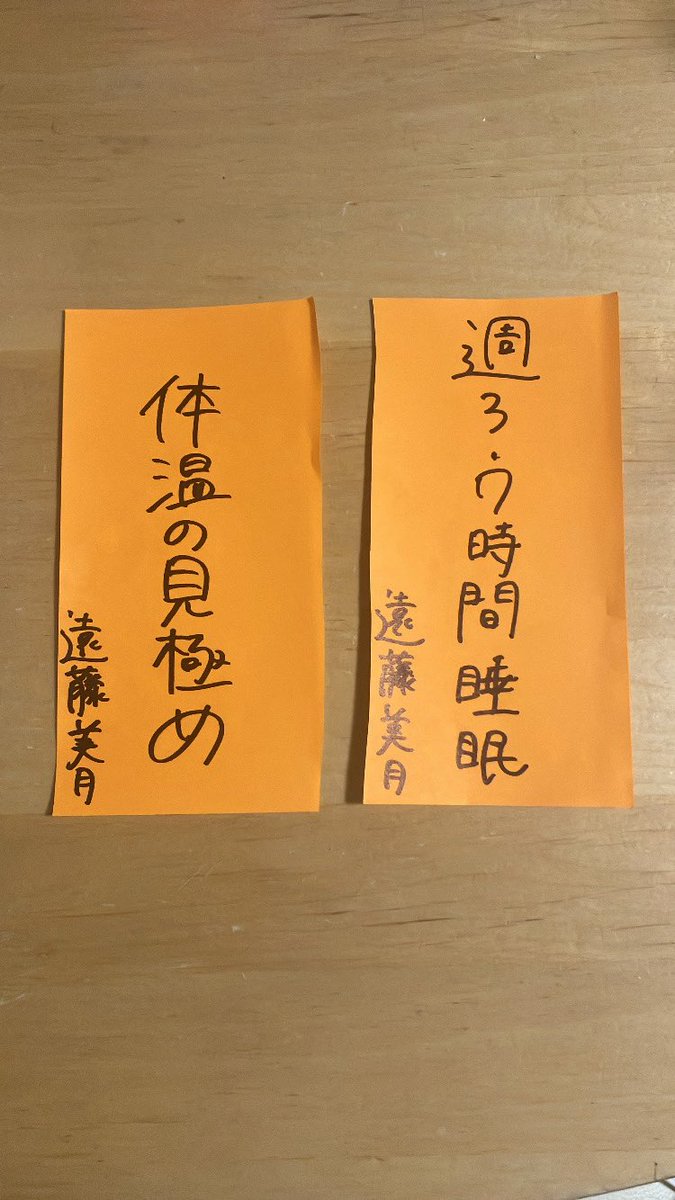 週3.7時間睡眠
遠藤美月
体温の見極め
遠藤美月